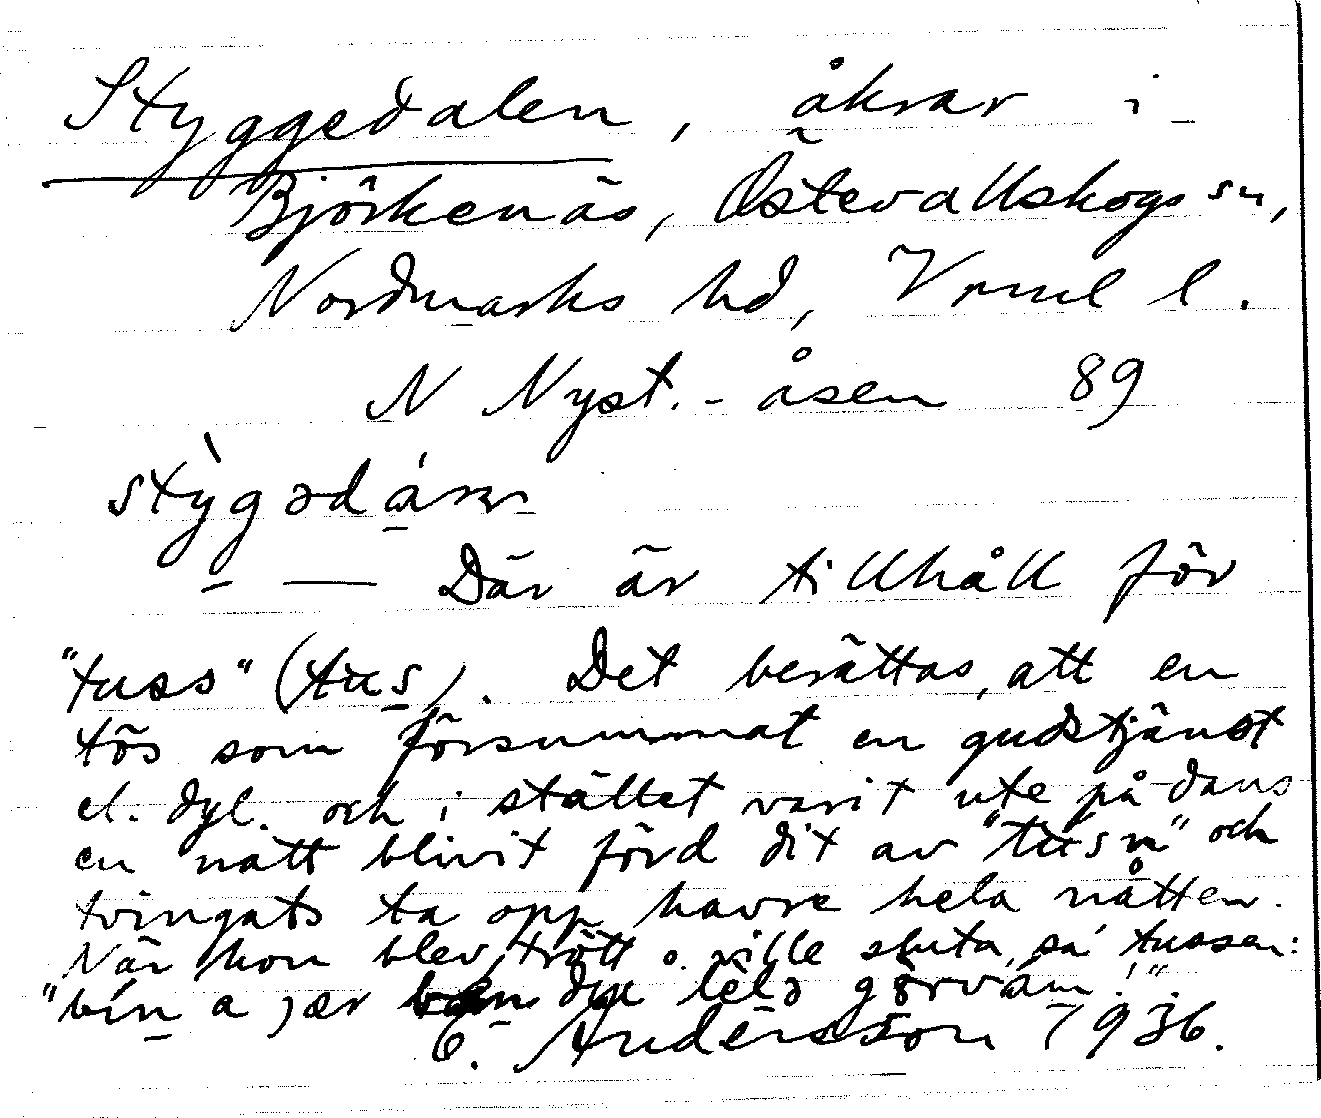 Styggedalen, åkrar i
Björkenäs, Östervallskogs sn,
Nordmarks hd, Vrml l.
N Nyst.-åsen 89
– — Där är tillhåll för
"tuss" (tus). Det berättas, att en
tös som försummat en gudstjänst
el. dyl. och i stället varit ute på dans
en natt blivit förd dit av "tusn" och
tvingats ta opp havre hela nåtten.
När hon blev trött o. ville sluta, sá tussen:
"bín a jær
E. Andersson 1936.